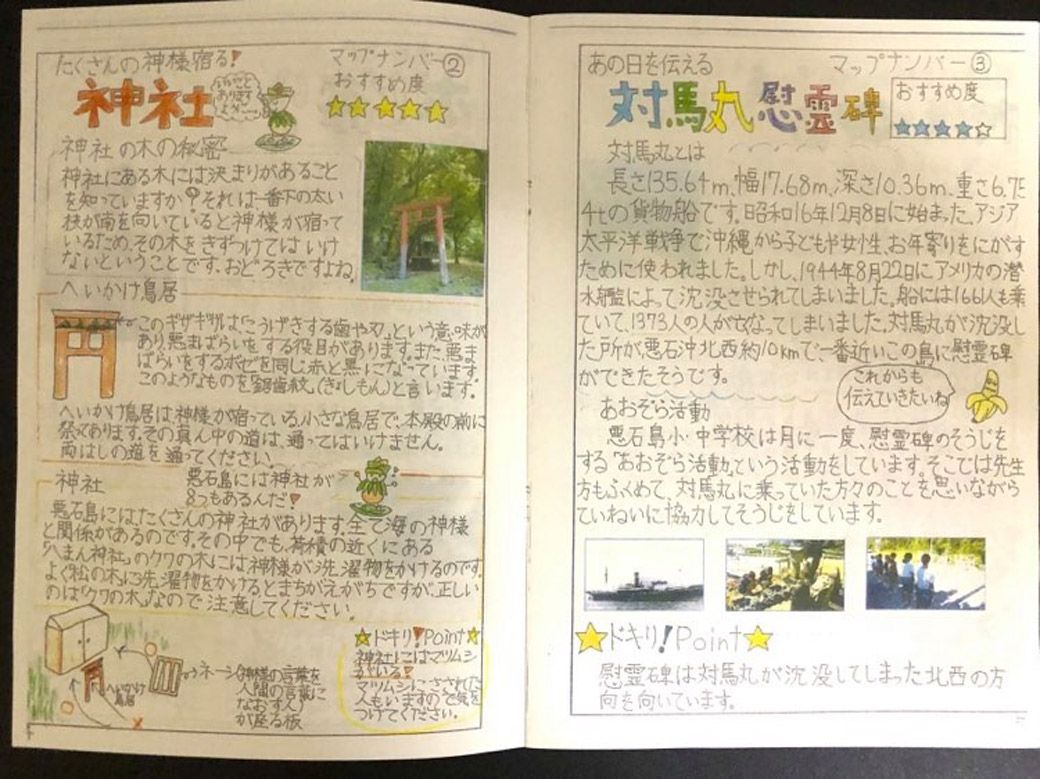 たくさんの神様宿る!
マップナンバー②
神社
おすすめ度
神社の木の秘密
神社にある木には決まりがあること
を知っていますか?それは一番下の太い
枝が南を向いていると神様が宿って
いるため、その木をきずつけてはいけ
ないということです。おどろきですよね。
へいかけ鳥居
このギザギザは「こうげきする歯や刃」という意味が
あり、悪まばらいをする役目があります。また、悪ま
ばらいをするボゼを同じ赤と黒になっています。
このようなものを鋸歯紋(きょしもん)と言います。
へいかけ鳥居は神様が宿っている小さな鳥居で、本殿の前に
祭ってあります。その真ん中の道は、通ってはいけません。
両はしの道を通ってください。
神社
悪石島には神社が
8つもあるんだ!
悪石島には、たくさんの神社があります。全て海の神様
と関係があるのです。その中でも、荷積の近くにある
「八まん神社」のクワの木には神様が洗濯物をかけるのです。
よく「松の木」に洗濯物をかけるとまちがえがちですが、正しい
のは「クワの木」なので注意してください。
へいかけ
鳥居
ネーシ(神様の言葉を
人間の言葉に
なおす人)
が座る板
ドキリ!Point
神社にはマツムシ
がいる!
マツムシにさされた
人もいますので気を
つけてください。
あの日を伝える
マップナンバー③
対馬丸慰霊碑
おすすめ度
対馬丸とは
長さ135.64m、幅17.68m、深さ10.36m、重さ6.7
4tの貨物船です。昭和16年12月8日に始まった、アジア
太平洋戦争で沖縄から子どもや女性、お年寄りをにがす
ために使われました。しかし、1944年8月22日にアメリカの潜
水艦によって沈没させられてしまいました。船には1661人も乗
ていて、1373人の人が亡なってしまいました。対馬丸が沈没し
た所が、悪石沖北西約10kmで一番近いこの島に慰霊碑
ができたそうです。
これからも
伝えていきたいね
あおぞら活動
悪石島小・中学校は月に一度、慰霊碑のそうじを
する「あおぞら活動」という活動をしています。そこでは先生
方もふくめて、対馬丸に乗っていた方々のことを思いながら
ていねいに協力してそうじをしています。
ドキリ!Point
慰霊碑は対馬丸が沈没してしまった北西の方
向を向いています。